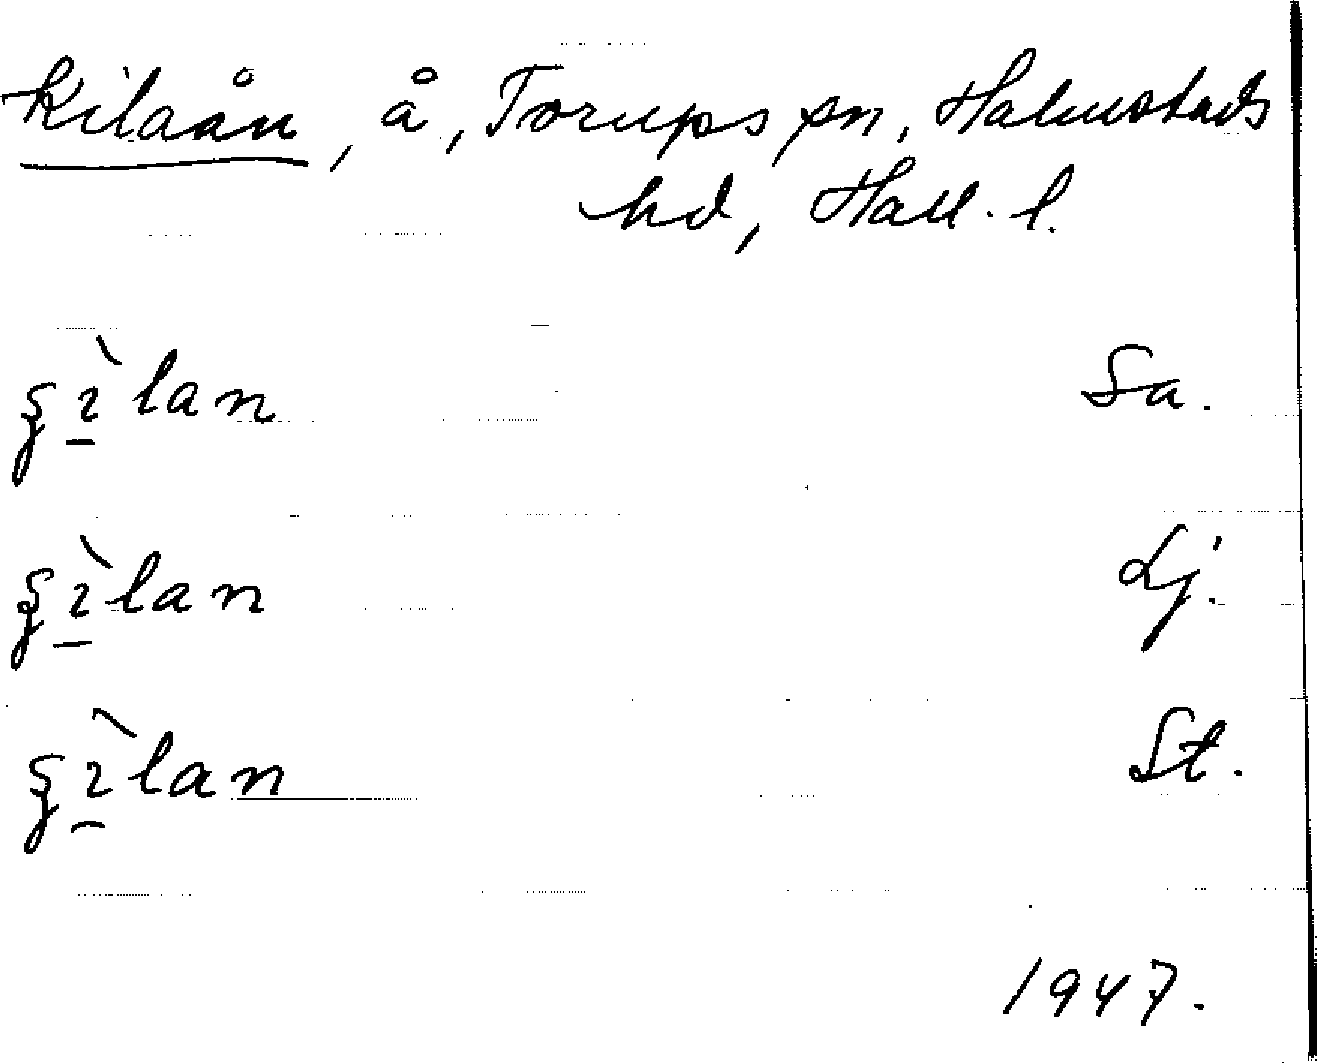 Kilaån, å, Torups sn, Halmstads
hd, Hall. l.
ʂı̱̀lan Sa.
ʂı̱̀lan Lj.
ʂı̱̀lan St.
1947.